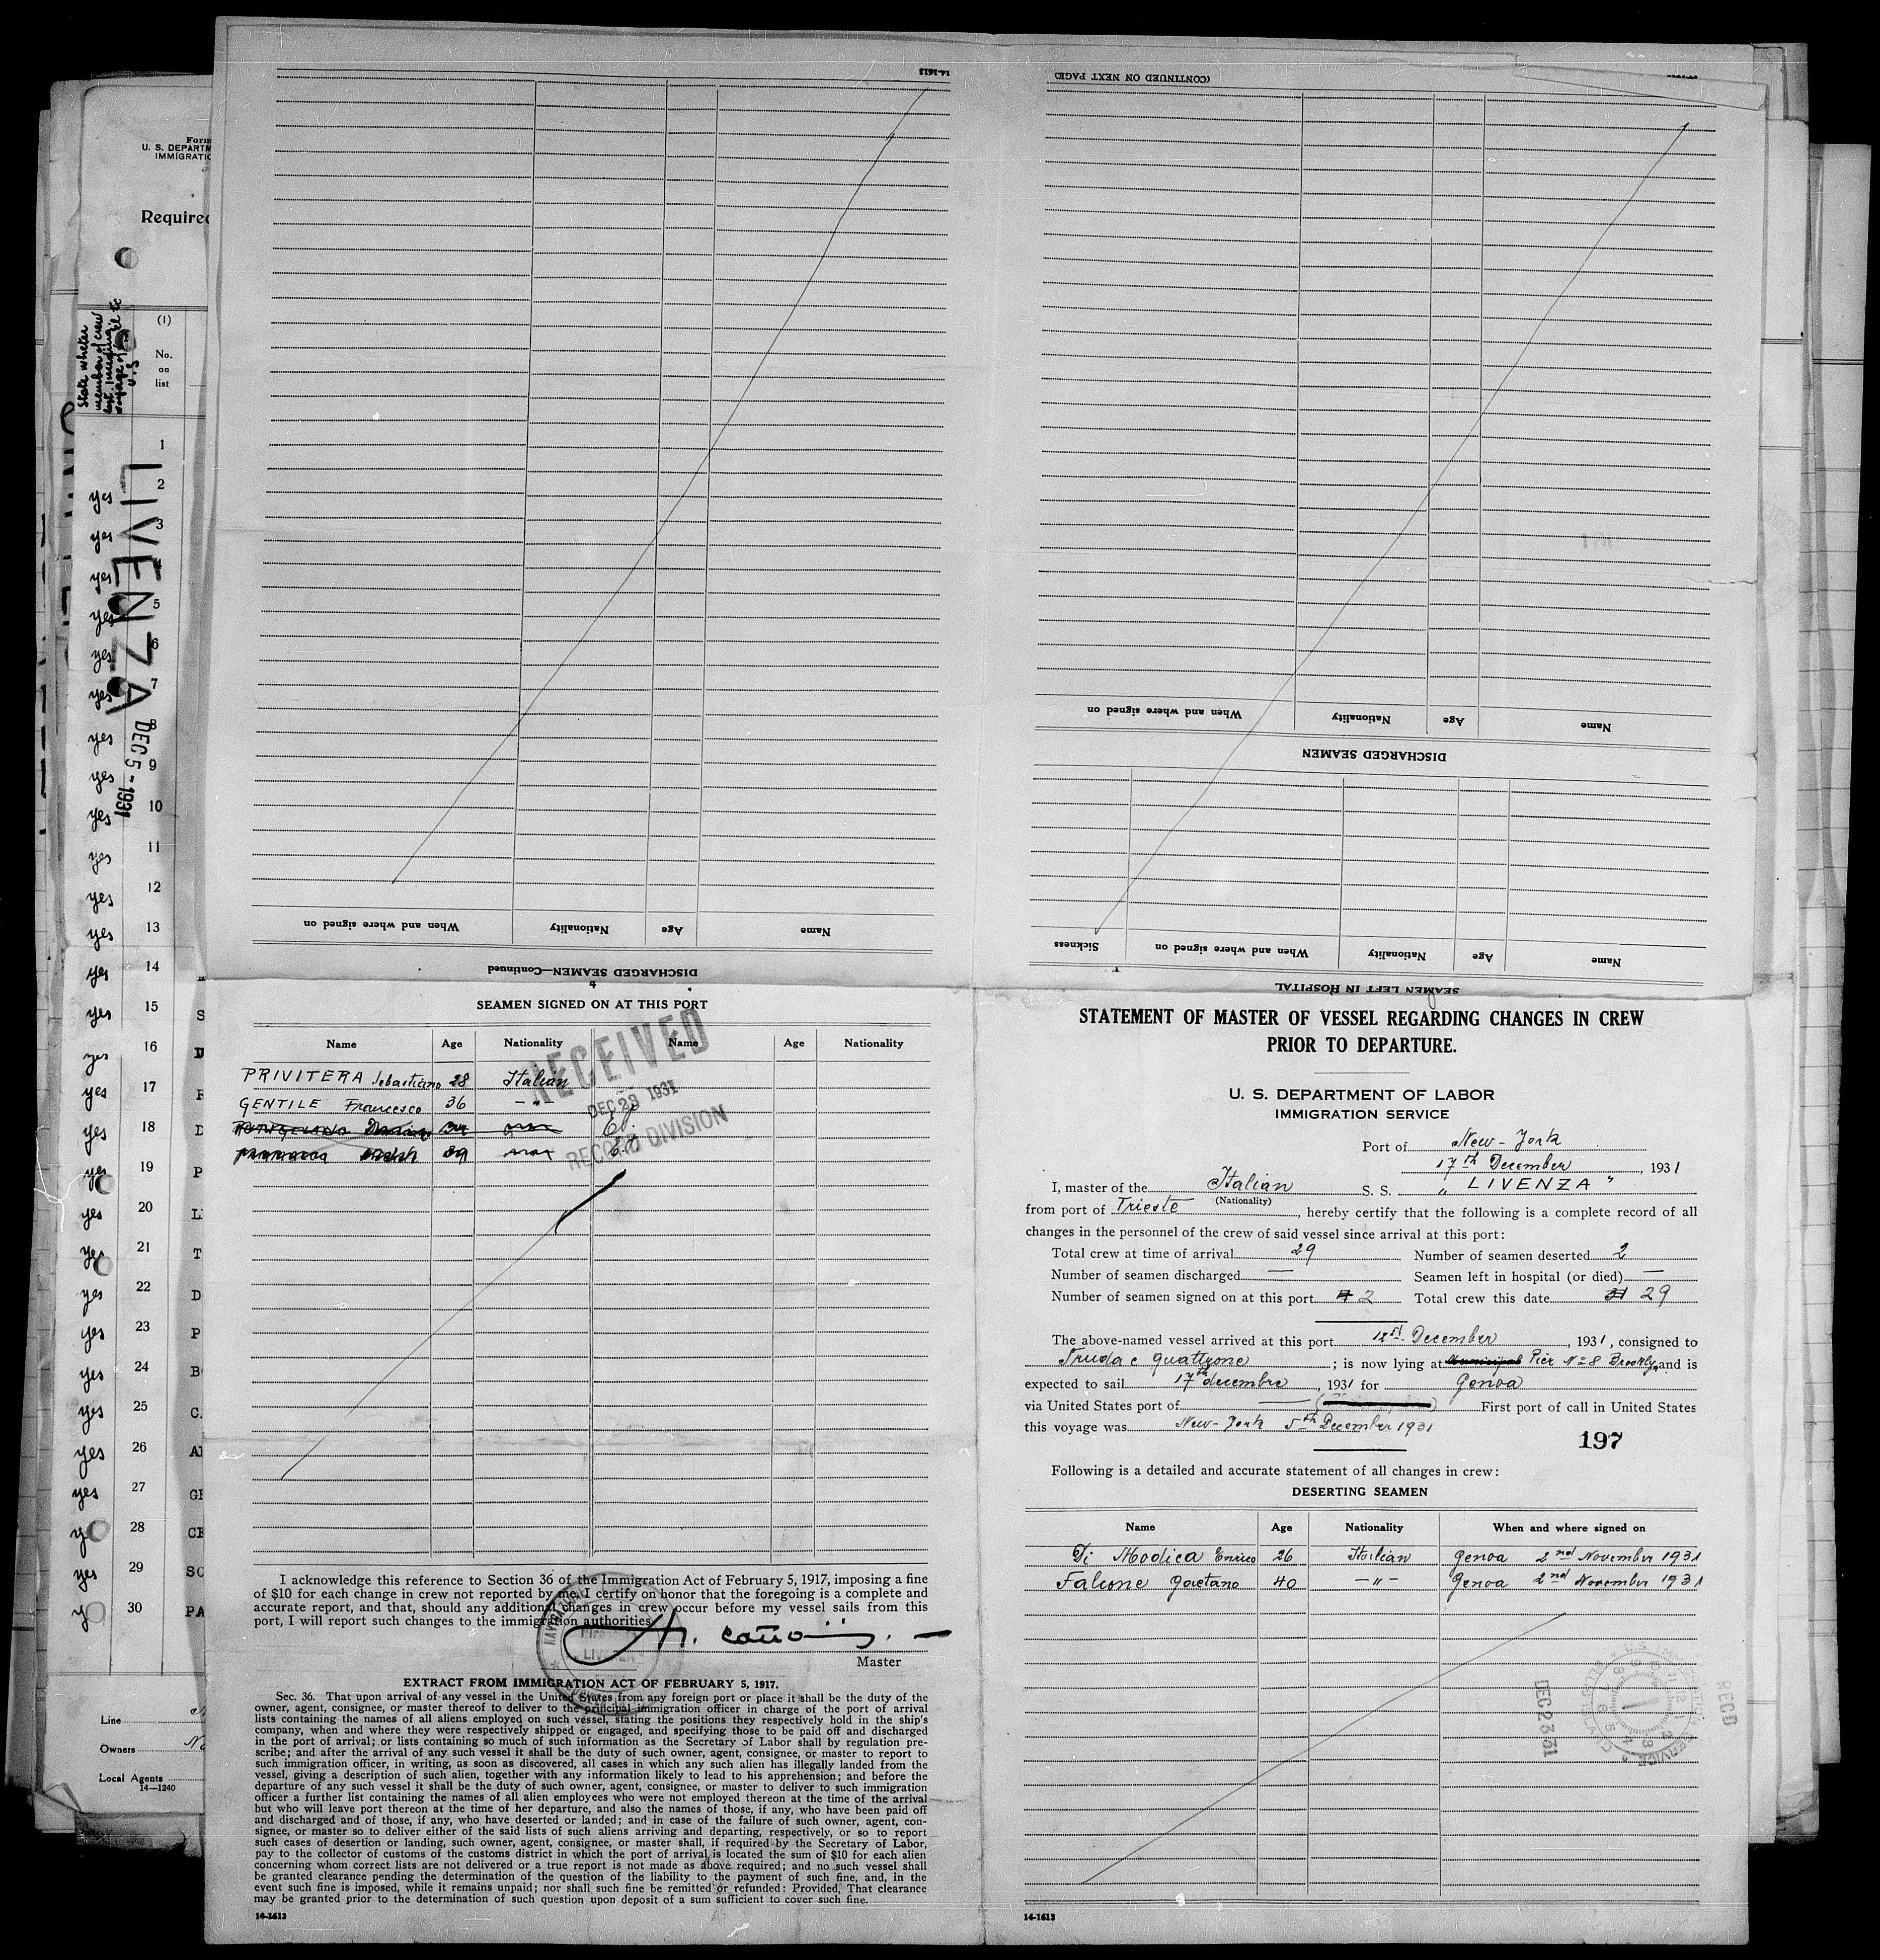 Form
U. S. DEPARTM
IMMIGRATIO
Required
State whether
member of crew
voyage of
U.S.
(1)
No.
on
list
LIVENZA
DEC 5 - 1931
1
yes 2
yes 3
yes 4
yes 5
yes 6
yes 7
yes 8
yes 9
yes 10
yes 11
yes 12
yes 13
yes 14
yes 15 S
yes 16 D
yes 17
yes 18 D
yes 19 P
yes 20
yes 21 T
yes 22 D
yes 23 P
yes 24 B
yes 25 C
yes 26 AI
yes 27 GI
y 28 CE
yes 29 SC
y 30 PA
Line
Owners
Local Agents
14—1240
14-1613
When and where signed on Nationality Age Name
DISCHARGED SEAMEN—Continued
(CONTINUED ON NEXT PAGE)
When and where signed on Nationality Age Name
DISCHARGED SEAMEN
Sickness When and where signed on Nationality Age Name
SEAMEN LEFT IN HOSPITAL
4
SEAMEN SIGNED ON AT THIS PORT
Name Age Nationality Name Age Nationality
PRIVITERA Sebastiano 28 Italian
GENTILE Francesco 36 - " -
RECEIVED
DEC 23 1931
RECORD DIVISION
I acknowledge this reference to Section 36 of the Immigration Act of February 5, 1917, imposing a fine
of $10 for each change in crew not reported by me. I certify on honor that the foregoing is a complete and
accurate report, and that, should any additional changes in crew occur before my vessel sails from this
port, I will report such changes to the immigration authorities.
Master
EXTRACT FROM IMMIGRATION ACT OF FEBRUARY 5, 1917.
Sec. 36. That upon arrival of any vessel in the United States from any foreign port or place it shall be the duty of the
owner, agent, consignee, or master thereof to deliver to the principal immigration officer in charge of the port of arrival
lists containing the names of all aliens employed on such vessel, stating the positions they respectively hold in the ship's
company, when and where they were respectively shipped or engaged, and specifying those to be paid off and discharged
in the port of arrival; or lists containing so much of such information as the Secretary of Labor shall by regulation pre-
scribe; and after the arrival of any such vessel it shall be the duty of such owner, agent, consignee, or master to report to
such immigration officer, in writing, as soon as discovered, all cases in which any such alien has illegally landed from the
vessel, giving a description of such alien, together with any information likely to lead to his apprehension; and before the
departure of any such vessel it shall be the duty of such owner, agent, consignee, or master to deliver to such immigration
officer a further list containing the names of all alien employees who were not employed thereon at the time of the arrival
but who will leave port thereon at the time of her departure, and also the names of those, if any, who have been paid off
and discharged and of those, if any, who have deserted or landed; and in case of the failure of such owner, agent, con-
signee, or master so to deliver either of the said lists of such aliens arriving and departing, respectively, or so to report
such cases of desertion or landing, such owner, agent, consignee, or master shall, if required by the Secretary of Labor,
pay to the collector of customs of the customs district in which the port of arrival is located the sum of $10 for each alien
concerning whom correct lists are not delivered or a true report is not made as above required; and no such vessel shall
be granted clearance pending the determination of the question of the liability to the payment of such fine, and, in the
event such fine is imposed, while it remains unpaid; nor shall such fine be remitted or refunded: Provided, That clearance
may be granted prior to the determination of such question upon deposit of a sum sufficient to cover such fine.
14-1613
STATEMENT OF MASTER OF VESSEL REGARDING CHANGES IN CREW
PRIOR TO DEPARTURE.
U. S. DEPARTMENT OF LABOR
IMMIGRATION SERVICE
Port of New-York
17th December, 1931
I, master of the Italian S. S. „ LIVENZA "
(Nationality)
from port of Trieste, hereby certify that the following is a complete record of all
changes in the personnel of the crew of said vessel since arrival at this port:
Total crew at time of arrival 29 Number of seamen deserted 2
Number of seamen discharged — Seamen left in hospital (or died) —
Number of seamen signed on at this port 2 Total crew this date 31 29
The above-named vessel arrived at this port 12th December, 1931, consigned to
Truda e Quattrone; is now lying at Municipal Pier No 8 Brooklyn and is
expected to sail 17th decembre, 1931 for Genoa
via United States port of — First port of call in United States
this voyage was New-York 5th December 1931
197
Following is a detailed and accurate statement of all changes in crew:
DESERTING SEAMEN
Name Age Nationality When and where signed on
Di Modica Enrico 26 Italian Genoa 2nd November 1931
Falcone Gaetano 40 - " - Genoa 2nd November 1931
DEC 23 31
REC'D
14-1613